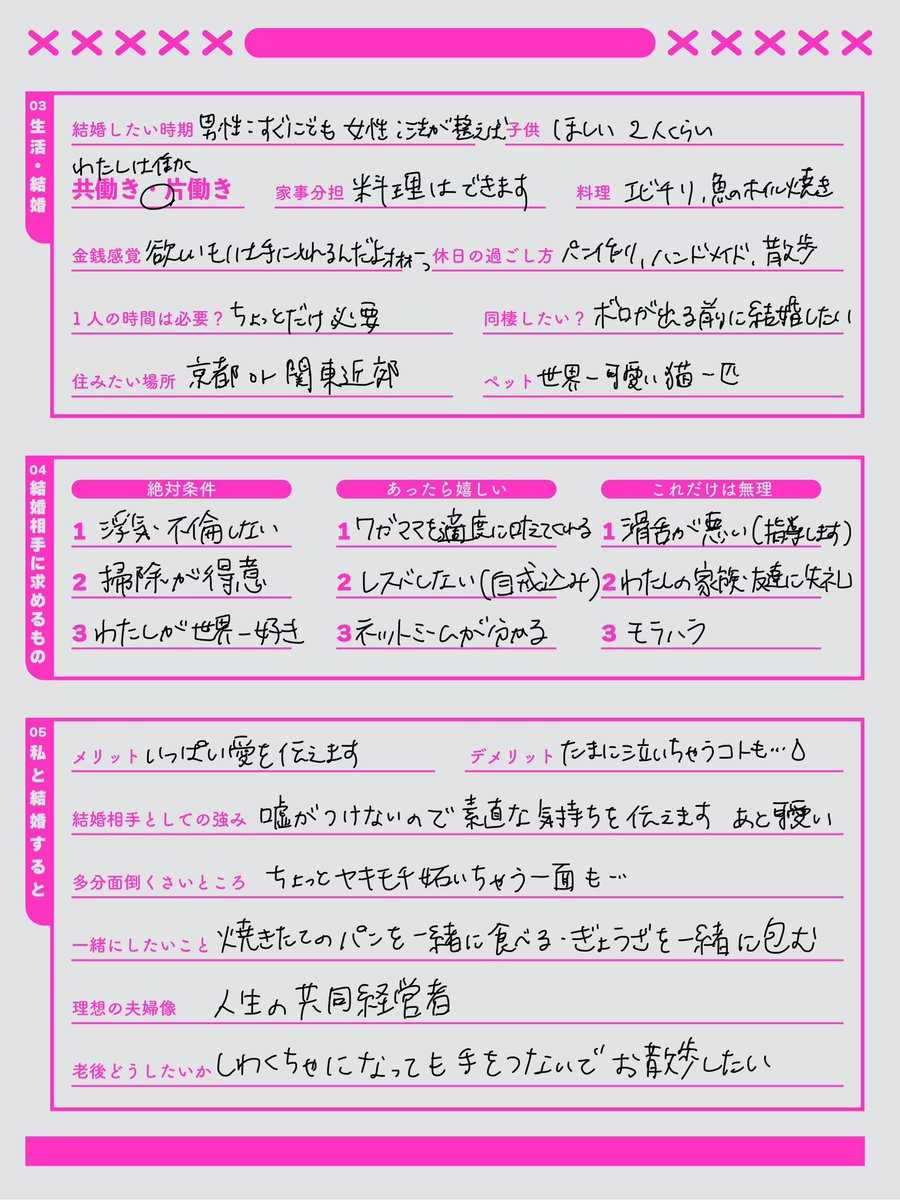 03 生活・結婚
結婚したい時期 男性:すぐにでも 女性:法が整えば 子供 ほしい 2人くらい
わたしは働く
共働き・片働き 家事分担 料理はできます 料理 エビチリ,魚のホイル焼き
金銭感覚 欲しいものは手に入れるんだよオオオーっ 休日の過ごし方 パン作り,ハンドメイド,散歩
1人の時間は必要? ちょっとだけ必要 同棲したい? ボロが出る前に結婚したい
住みたい場所 京都 or 関東近郊 ペット 世界一可愛い猫一匹
04 結婚相手に求めるもの
絶対条件
1 浮気・不倫しない
2 掃除が得意
3 わたしが世界一好き
あったら嬉しい
1 ワガママを適度に叶えてくれる
2 レスバしない(自戒込み)
3 ネットミームが分かる
これだけは無理
1 滑舌が悪い(指導します)
2 わたしの家族・友達に失礼
3 モラハラ
05 私と結婚すると
メリット いっぱい愛を伝えます デメリット たまに泣いちゃうコトも…
結婚相手としての強み 嘘がつけないので素直な気持ちを伝えます あと可愛い
多分面倒くさいところ ちょっとヤキモチ妬いちゃう一面も…
一緒にしたいこと 焼きたてのパンを一緒に食べる・ぎょうざを一緒に包む
理想の夫婦像 人生の共同経営者
老後どうしたいか しわくちゃになっても手をつないでお散歩したい